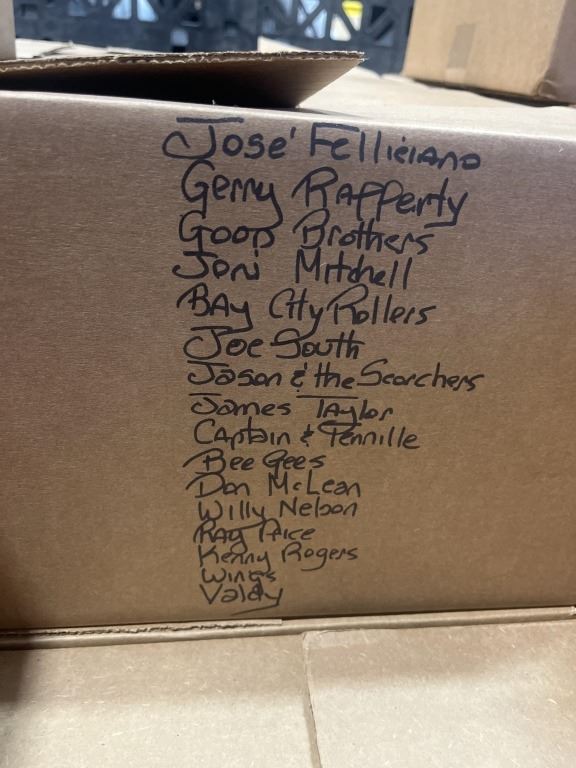 José Felliciano
Gerry Rafferty
Good Brothers
Joni Mitchell
Bay City Rollers
Joe South
Jason & the Scorchers
James Taylor
Captain & Tennille
Bee Gees
Don McLean
Willy Nelson
Ray Price
Kenny Rogers
Wings
Valdy